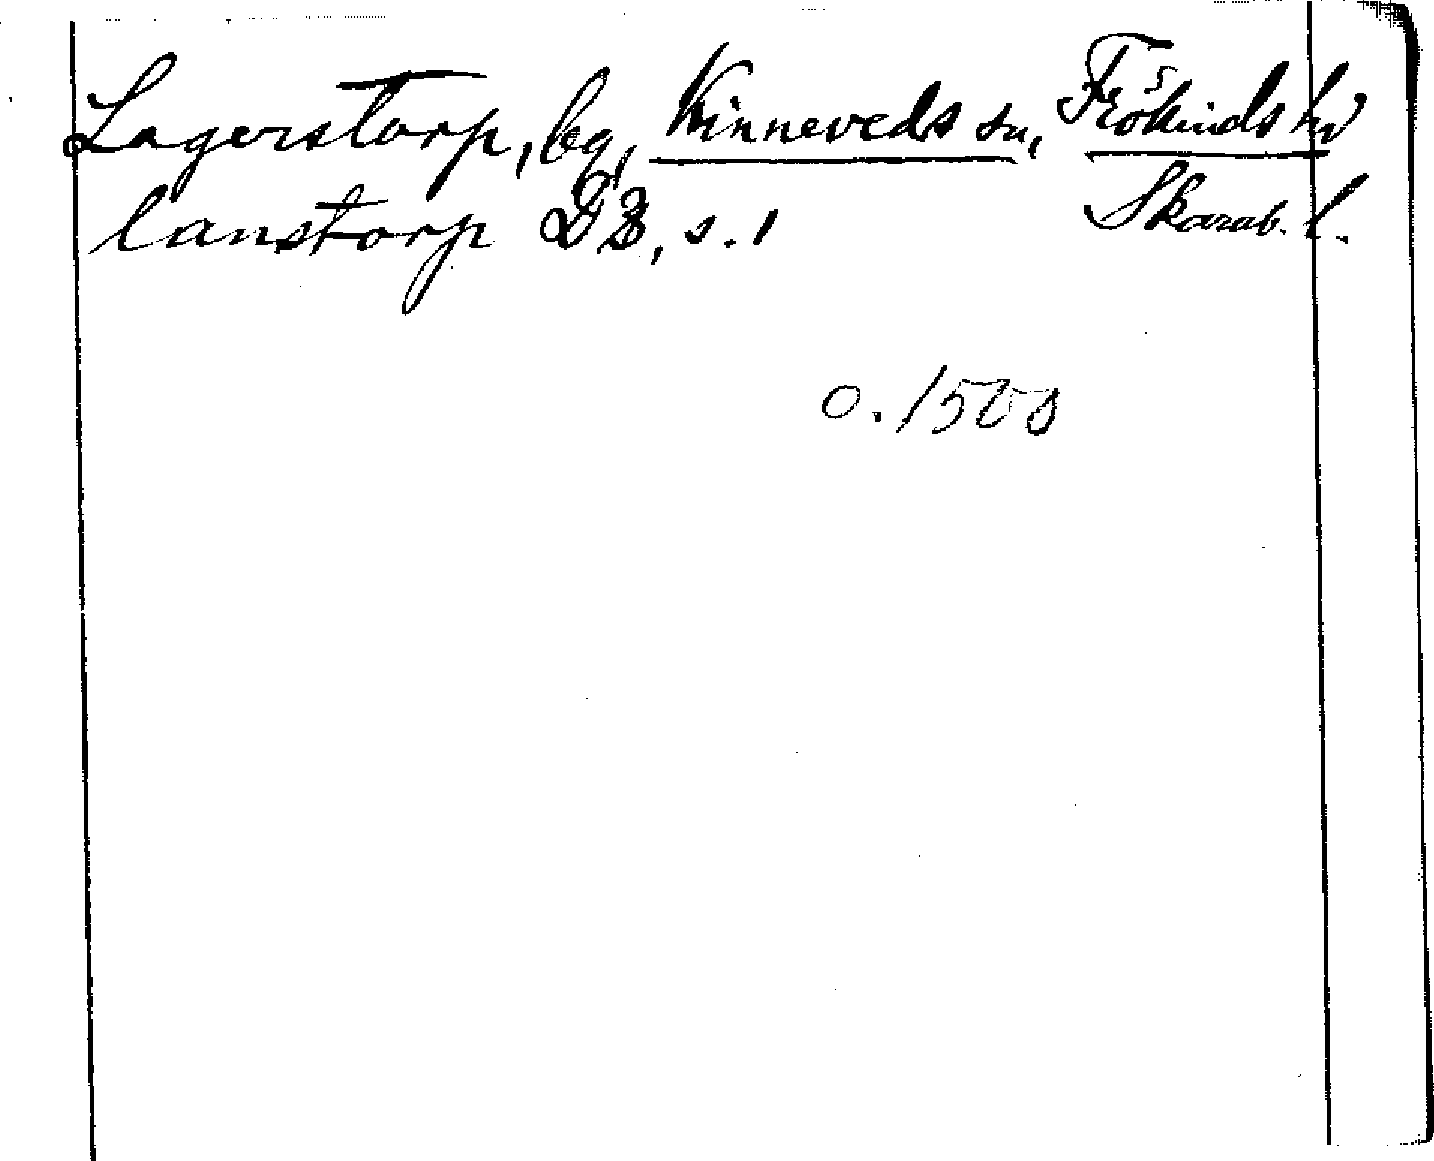 Lagerstorp, by, Kinneveds sn, Frökinds hd
lanstorp DB, s. 1 Skarab. l.
o. 1500